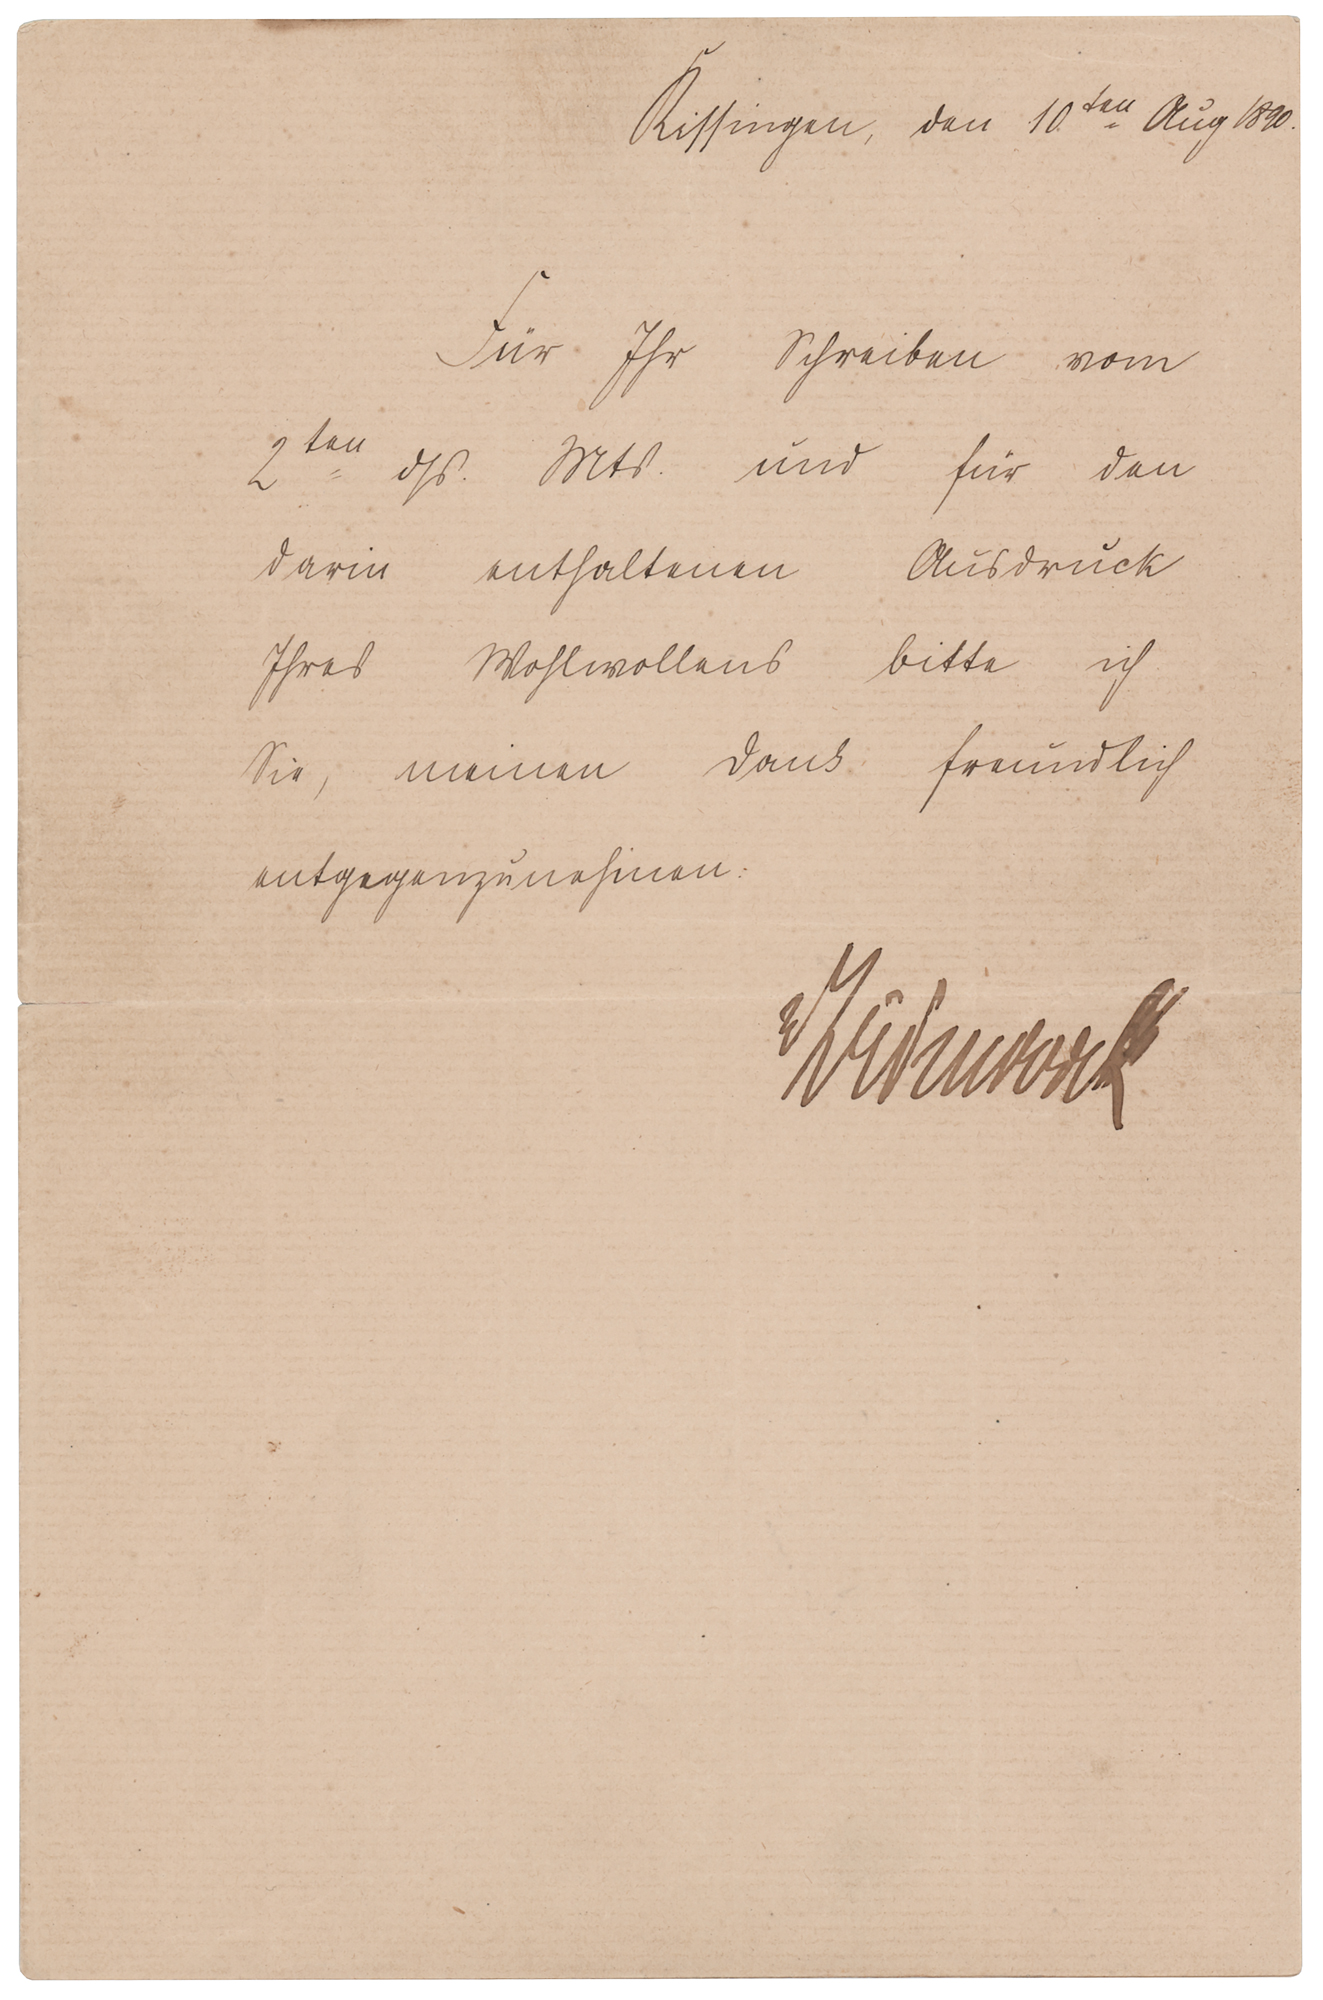 Kissingen, den 10ten Aug 1890.
Für Ihr Schreiben vom
2ten ds. Mts. und für den
darin enthaltenen Ausdruck
Ihres Wohlwollens bitte ich
Sie, meinen Dank freundlich
entgegenzunehmen.
v Bismarck